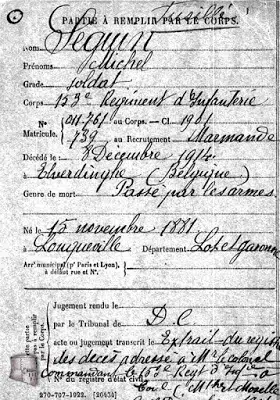 Fusillé
PARTIE À REMPLIR PAR LE CORPS.
Nom Seguin
Prénoms Michel
Grade soldat
Corps 153e Régiment d'Infanterie
No 011.761 au Corps. — Cl. 1901
Matricule. 739 au Recrutement Marmande
Décédé le 8 Décembre 1914
à Elverdinghe (Belgique)
Genre de mort Passé par les armes
Né le 15 novembre 1881
à Longueville Département Lot et garonne
Arrt municipal (pr Paris et Lyon),
à défaut rue et No.
Jugement rendu le
par le Tribunal de D C
acte ou jugement transcrit le Extrait du registre
des décès adressé à Mr le colonel
commandant le 153e Regt d'Infie à
Toul (Mthe Moselle
No du registre d'état civil
270-707-1922. [26434]